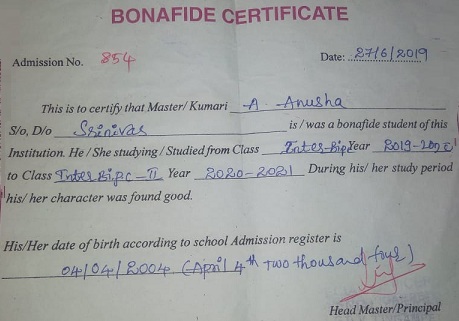 BONAFIDE CERTIFICATE
Admission No. 854 Date: 27/6/2019
This is to certify that Master/ Kumari A Anusha
S/o, D/o Srinivas is / was a bonafide student of this
Institution. He / She studying / Studied from Class Inter-Bipc Year 2019-2020
to Class Inter Bi.p.c-II Year 2020-2021 During his/ her study period
his/ her character was found good.
His/Her date of birth according to school Admission register is
04/04/2004 (April 4th two thousand four)
Head Master/Principal